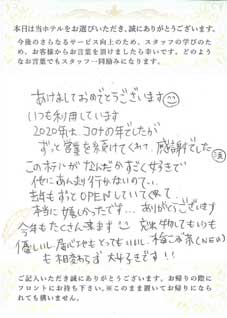 本日は当ホテルをお選びいただき、誠にありがとうございます。
今後のさらなるサービス向上のため、スタッフの学びのため、
お客様からお言葉を頂けましたら幸いです。どのよう
なお言葉でもスタッフ一同励みになります。
あけましておめでとうございます
いつも利用しています
2020年は、コロナの年でしたが
ずっと営業を続けてくれて、感謝でした
このホテルがなんだかすごく好きで
他にあんまり行かないので、、
去年もずっとOPENしていてくれて、
本当に嬉しかったです... ありがとうございます
今年もたくさん来ます
優しいし、居心地もとってもいいし、
も相変わらず大好きです!!
ご記入いただき誠にありがとうございます。お帰りの際に
フロントにお持ち下さい。※このまま置いてお帰りになら
れても構いません。